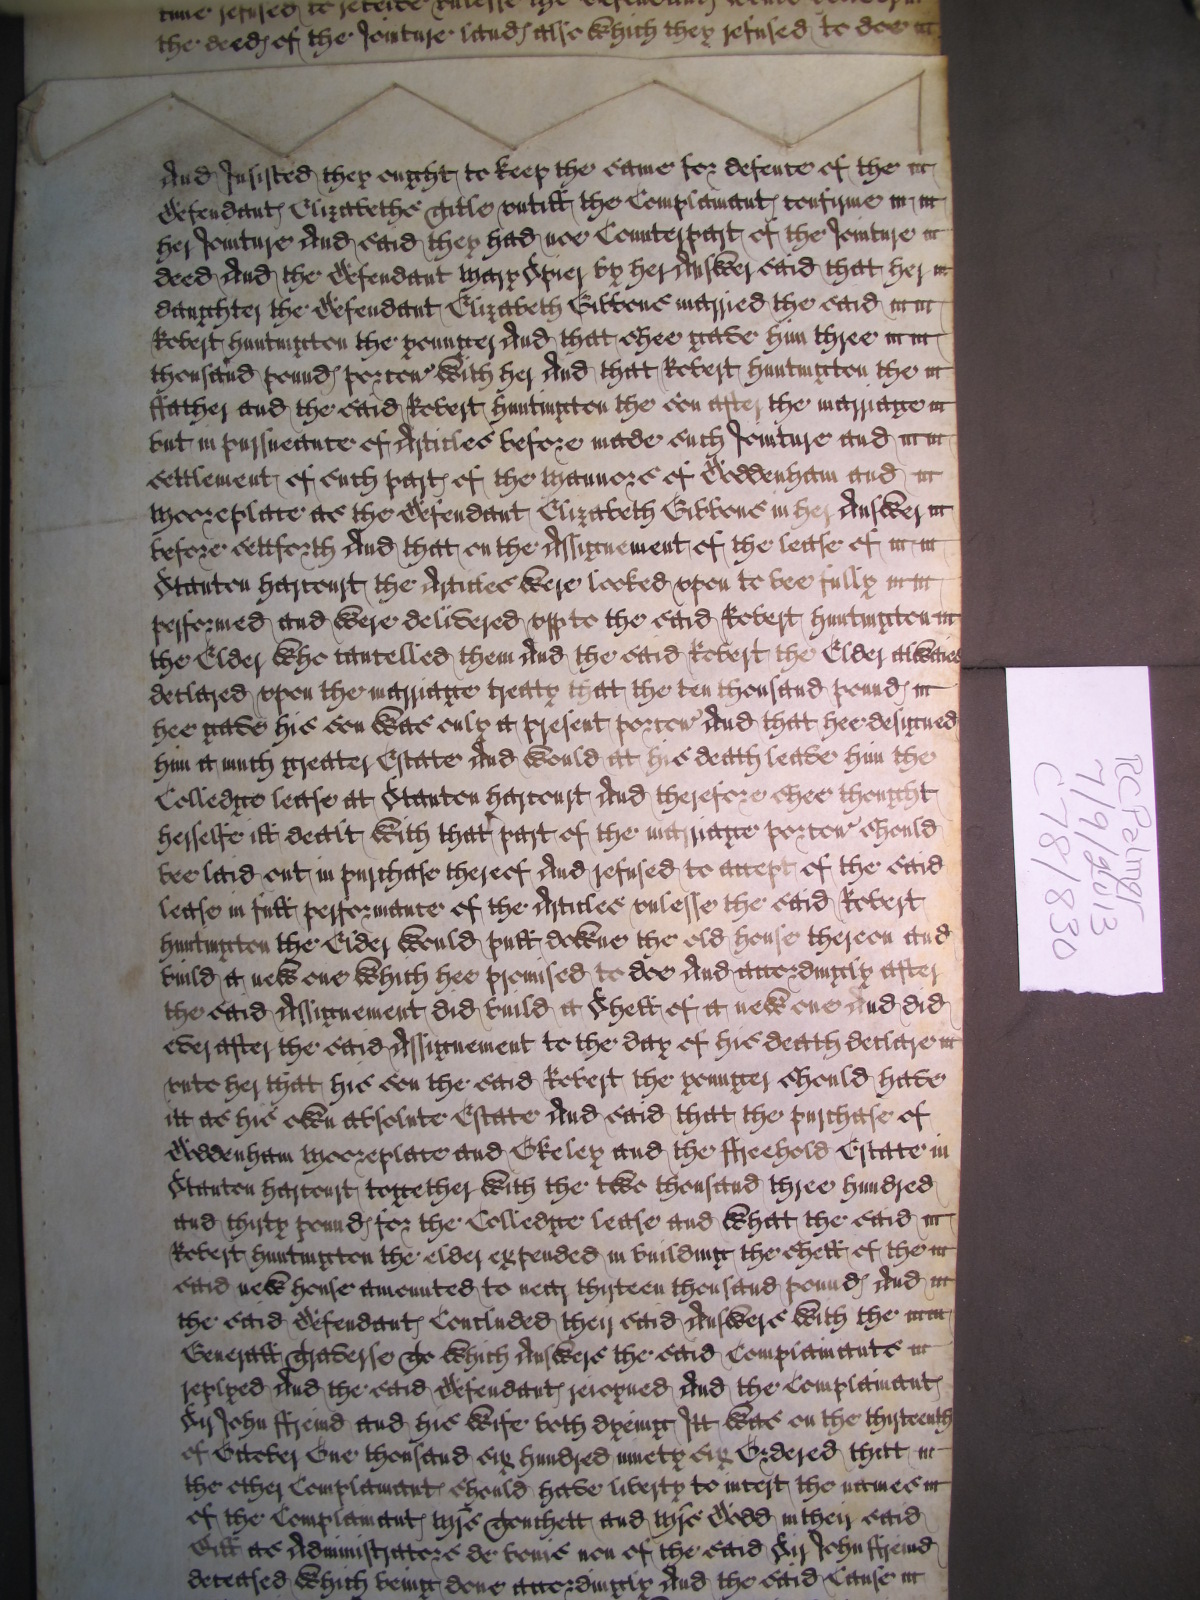 time refused to receive unlesse the Defendants would
the deeds of the Jointure lands also which they refused to doe
And Insisted they ought to keep the same for defence of the
Defendants Elizabeths Title untill the Complainants confirme
her Jointure And said they had noe Counterpart of the Jointure
deed And the Defendant Mary Spier by her Answer said that her
daughter the Defendant Elizabeth Gibbons married the said
Robert Huntington the younger And that shee gave him three
thousand pounds porcon with her And that Robert Huntington the
ffather and the said Robert Huntington the son after the marriage
but in pursueance of Articles before made such Jointure and
settlement of such parts of the Mannors of Doddenham and
Mooreplace as the Defendant Elizabeth Gibbons in her Answer
before settforth And that on the Assignement of the lease of
Stanton Harcourt the Articles were looked upon to bee fully
performed and were delivered upp to the said Robert Huntington
the Elder who cancelled them And the said Robert the Elder alwaies
declared upon the marriage treaty that the ten thousand pounds
hee gave his son was only a present porcon And that hee designed
him a much greater Estate And would at his death leave him the
Colledge lease at Stanton Harcourt And therefore shee thought
herselfe ill dealt with that part of the marriage porcon should
bee laid out in purchase thereof And refused to accept of the said
lease in full performance of the Articles unlesse the said Robert
Huntington the Elder would pull downe the old house thereon and
build a new one which hee promised to doe And accordingly after
the said Assignement did build a Shell of a new one And did
ever after the said Assignement to the day of his death declare
unto her that his son the said Robert the younger should have
itt as his own absolute Estate And said that the purchase of
Doddenham Mooreplace and Okeley and the ffreehold Estate in
Stanton Harcourt together with the two thousand three hundred
and thirty pounds for the Colledge lease and what the said
Robert Huntington the elder expended in building the shell of the
said new house amounted to near thirteen thousand pounds And
the said Defendants Concluded their said Answers with the
Generall Traverse To which Answers the said Complainants
replyed And the said Defendants rejoyned And the Complainants
Sir John ffreind and his wife both dyeing Itt was on the thirteenth
of October One thousand six hundred ninety six Ordered that
the other Complainants should have liberty to insert the names
of the Complainants and Dodd in their said
Bill as Administrators de bonis non of the said Sir John ffreind
deceased which being done accordingly And the said Cause
RCPalmer
7/9/2013
C78/830